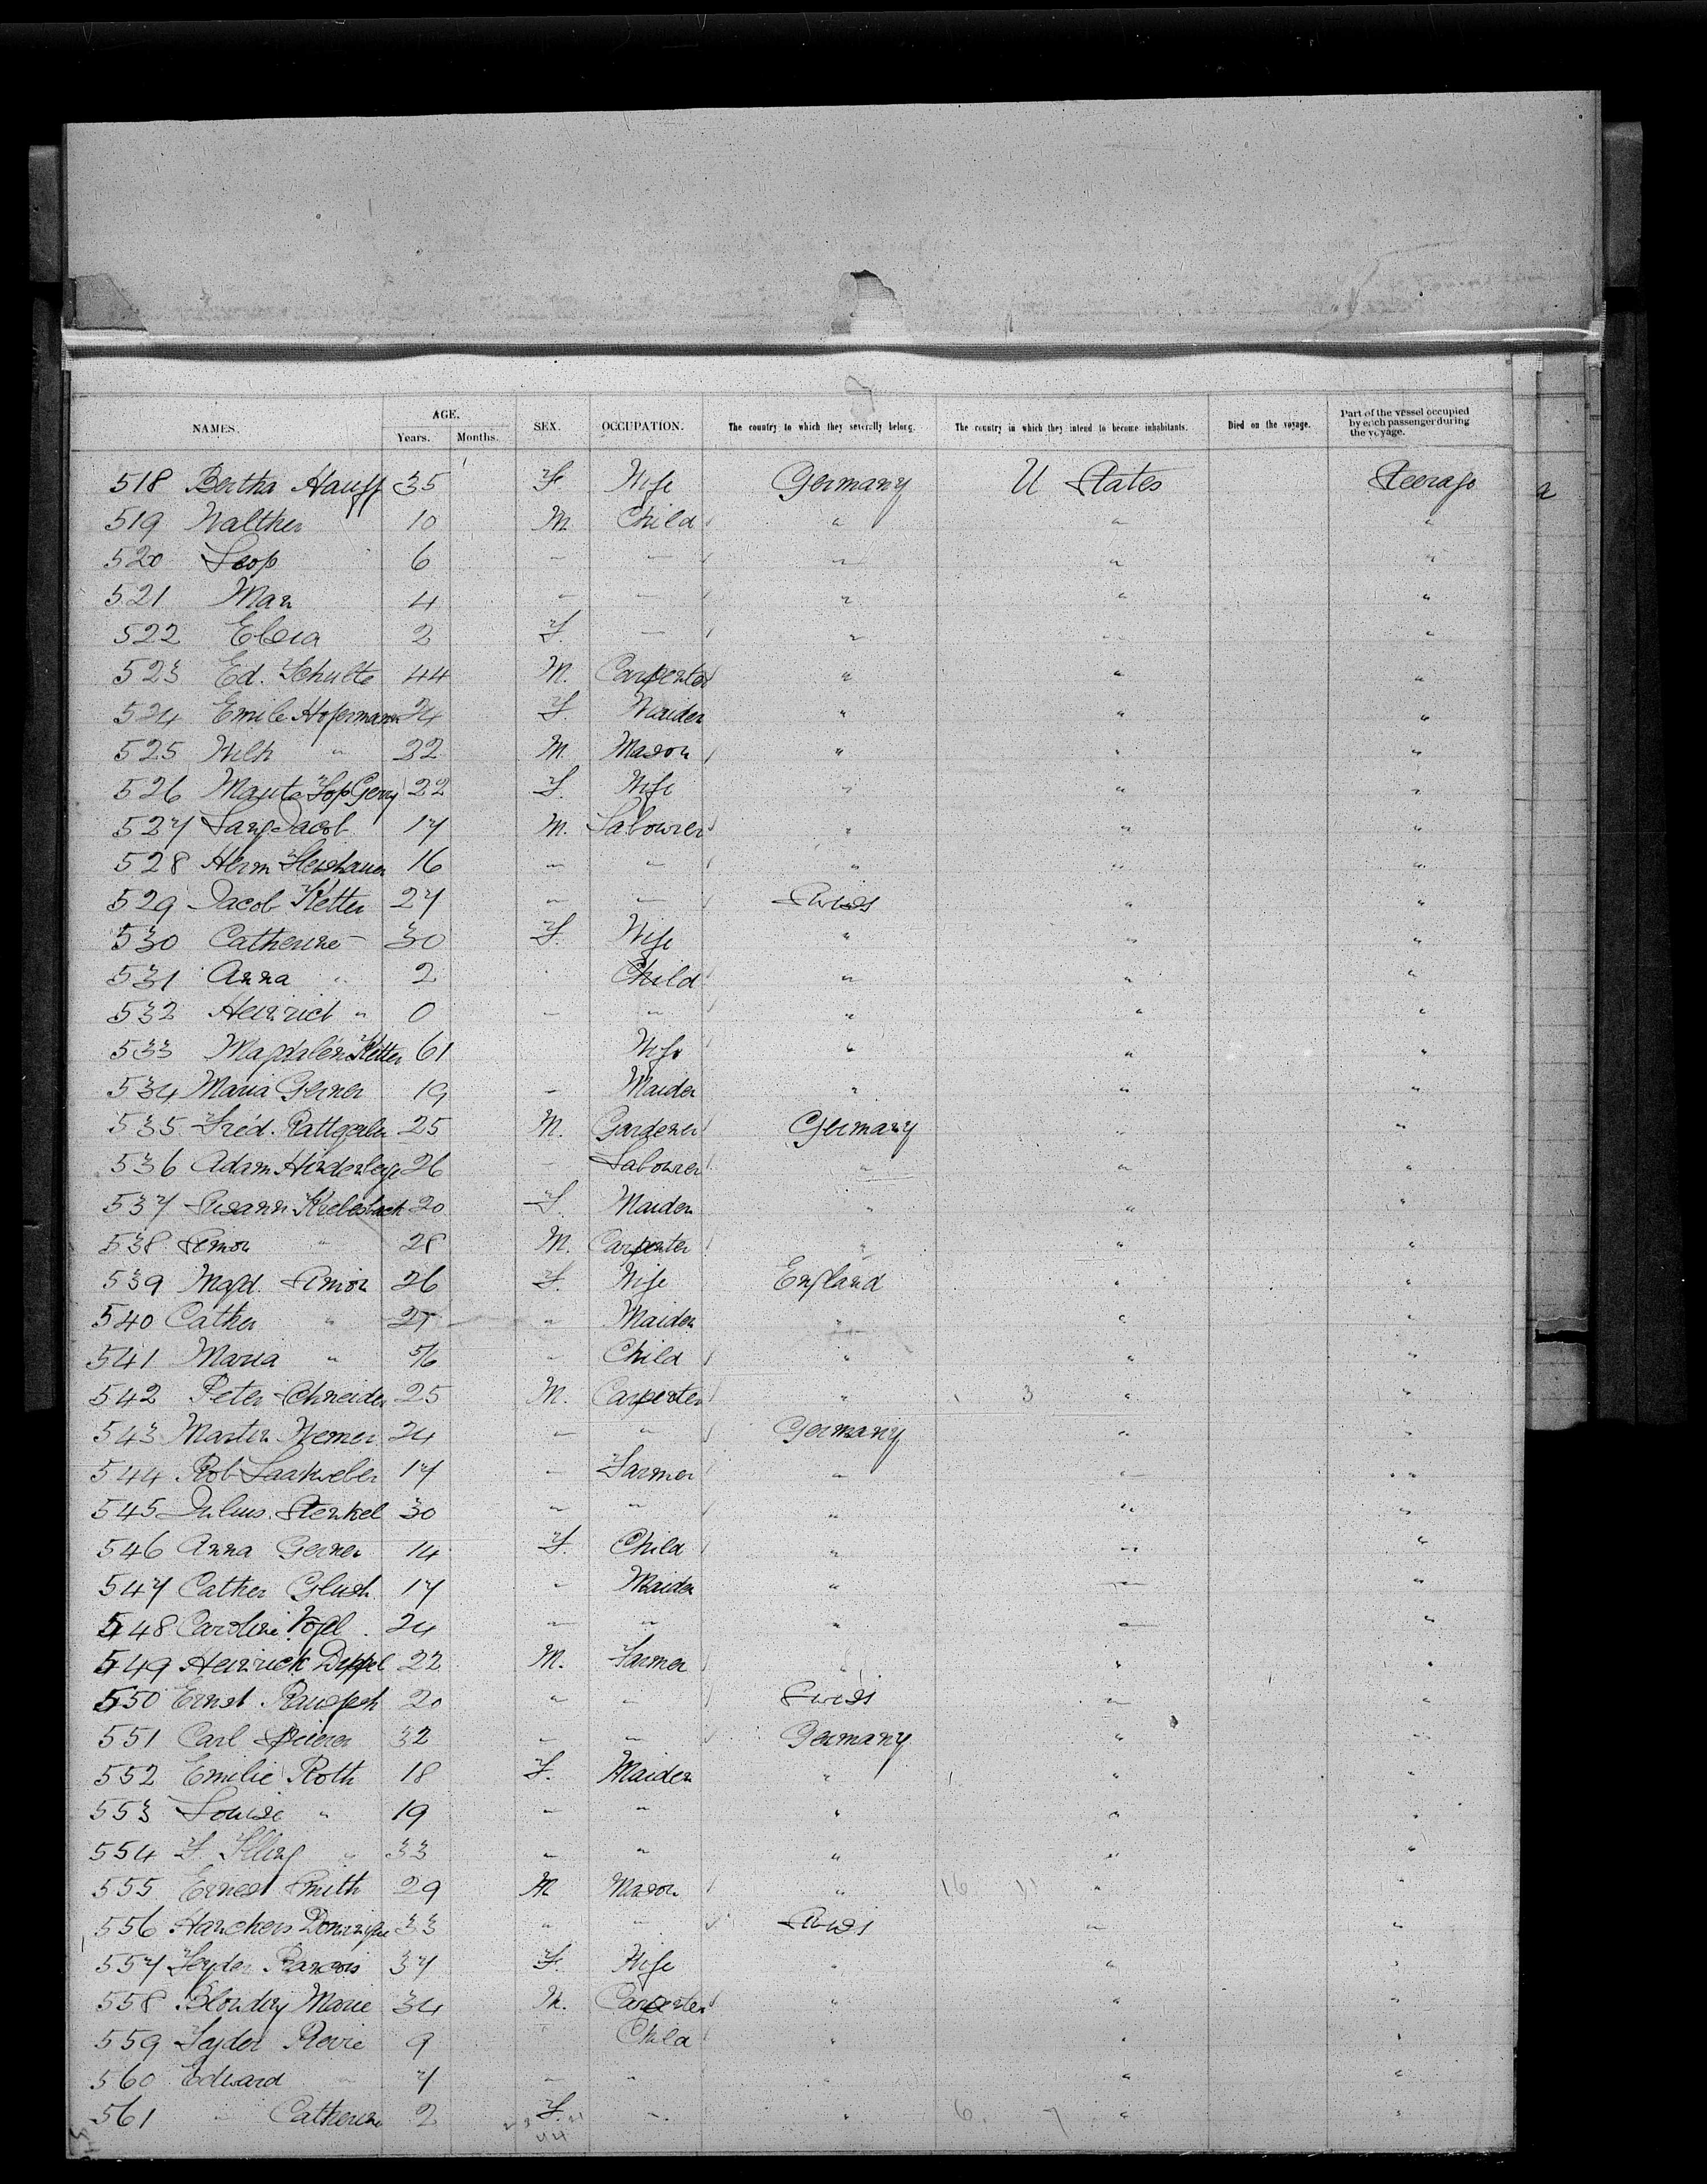 NAMES. AGE. Years. Months. SEX. OCCUPATION. The country to which they severally belong. The country in which they intend to become inhabitants. Died on the voyage. Part of the vessel occupied by each passenger during the voyage.
518 Bertha Hauff 35 F. Wife Germany U States Steerage
519 Walther 10 M. Child " " "
520 6 — — " " "
521 Max 4 — — " " "
522 2 F. — " " "
523 Ed. Schulte 44 M. Carpenter " " "
524 Emile Hofermann 24 F. Maiden " " "
525 Wilh " 22 M. Mason " " "
526 22 F. Wife " " "
527 Lang Jacob 17 M. Labourer " " "
528 Herm 16 — " " " "
529 Jacob Ketter 27 " — Swiss " "
530 Catherine — 30 F. Wife " " "
531 Anna " 2 Child " " "
532 Heinrich " 0 — " " " "
533 Magdalen Ketter 61 Wife " " "
534 Maria Gerner 19 — Maiden " " "
535 Fréd. 25 M. Gardener Germany " "
536 Adam 26 — Labourer " " "
537 Susann Krebsbach 20 F. Maiden " " "
538 Simon " 28 M. Carpenter " " "
539 Magd. Simon 26 F. Wife England " "
540 Cather " " Maiden " " "
541 Maria " — Child " " "
542 Peter Schneider 25 M. Carpenter " 3 " "
543 Martin Werner 24 — " Germany " "
544 Rob Saakweber 17 — Farmer " " "
545 Julius Stenkel 30 " " " " "
546 Anna Gerner 14 F. Child " " "
547 Cather 17 " Maiden " — "
548 Caroline Vogel 24 — " " — "
549 Heinrich Deppel 22 M. Farmer " " "
550 Ernst 20 " — Swiss — "
551 Carl 32 — — Germany " "
552 Emilie Roth 18 F. Maiden " " "
553 Louise " 19 — " " " "
554 F. Illing " 33 — " " " "
555 Ernest Smith 29 M Mason " 16 11 " "
556 33 " " Swiss — "
557 Seyder 37 F. Wife " " "
558 Blondry Marie 34 M. Carpenter " " "
559 Seyder 9 Child " " "
560 Edward " 7 — " " " "
561 " Catherine 2 F. " " 6. 7 " "
44